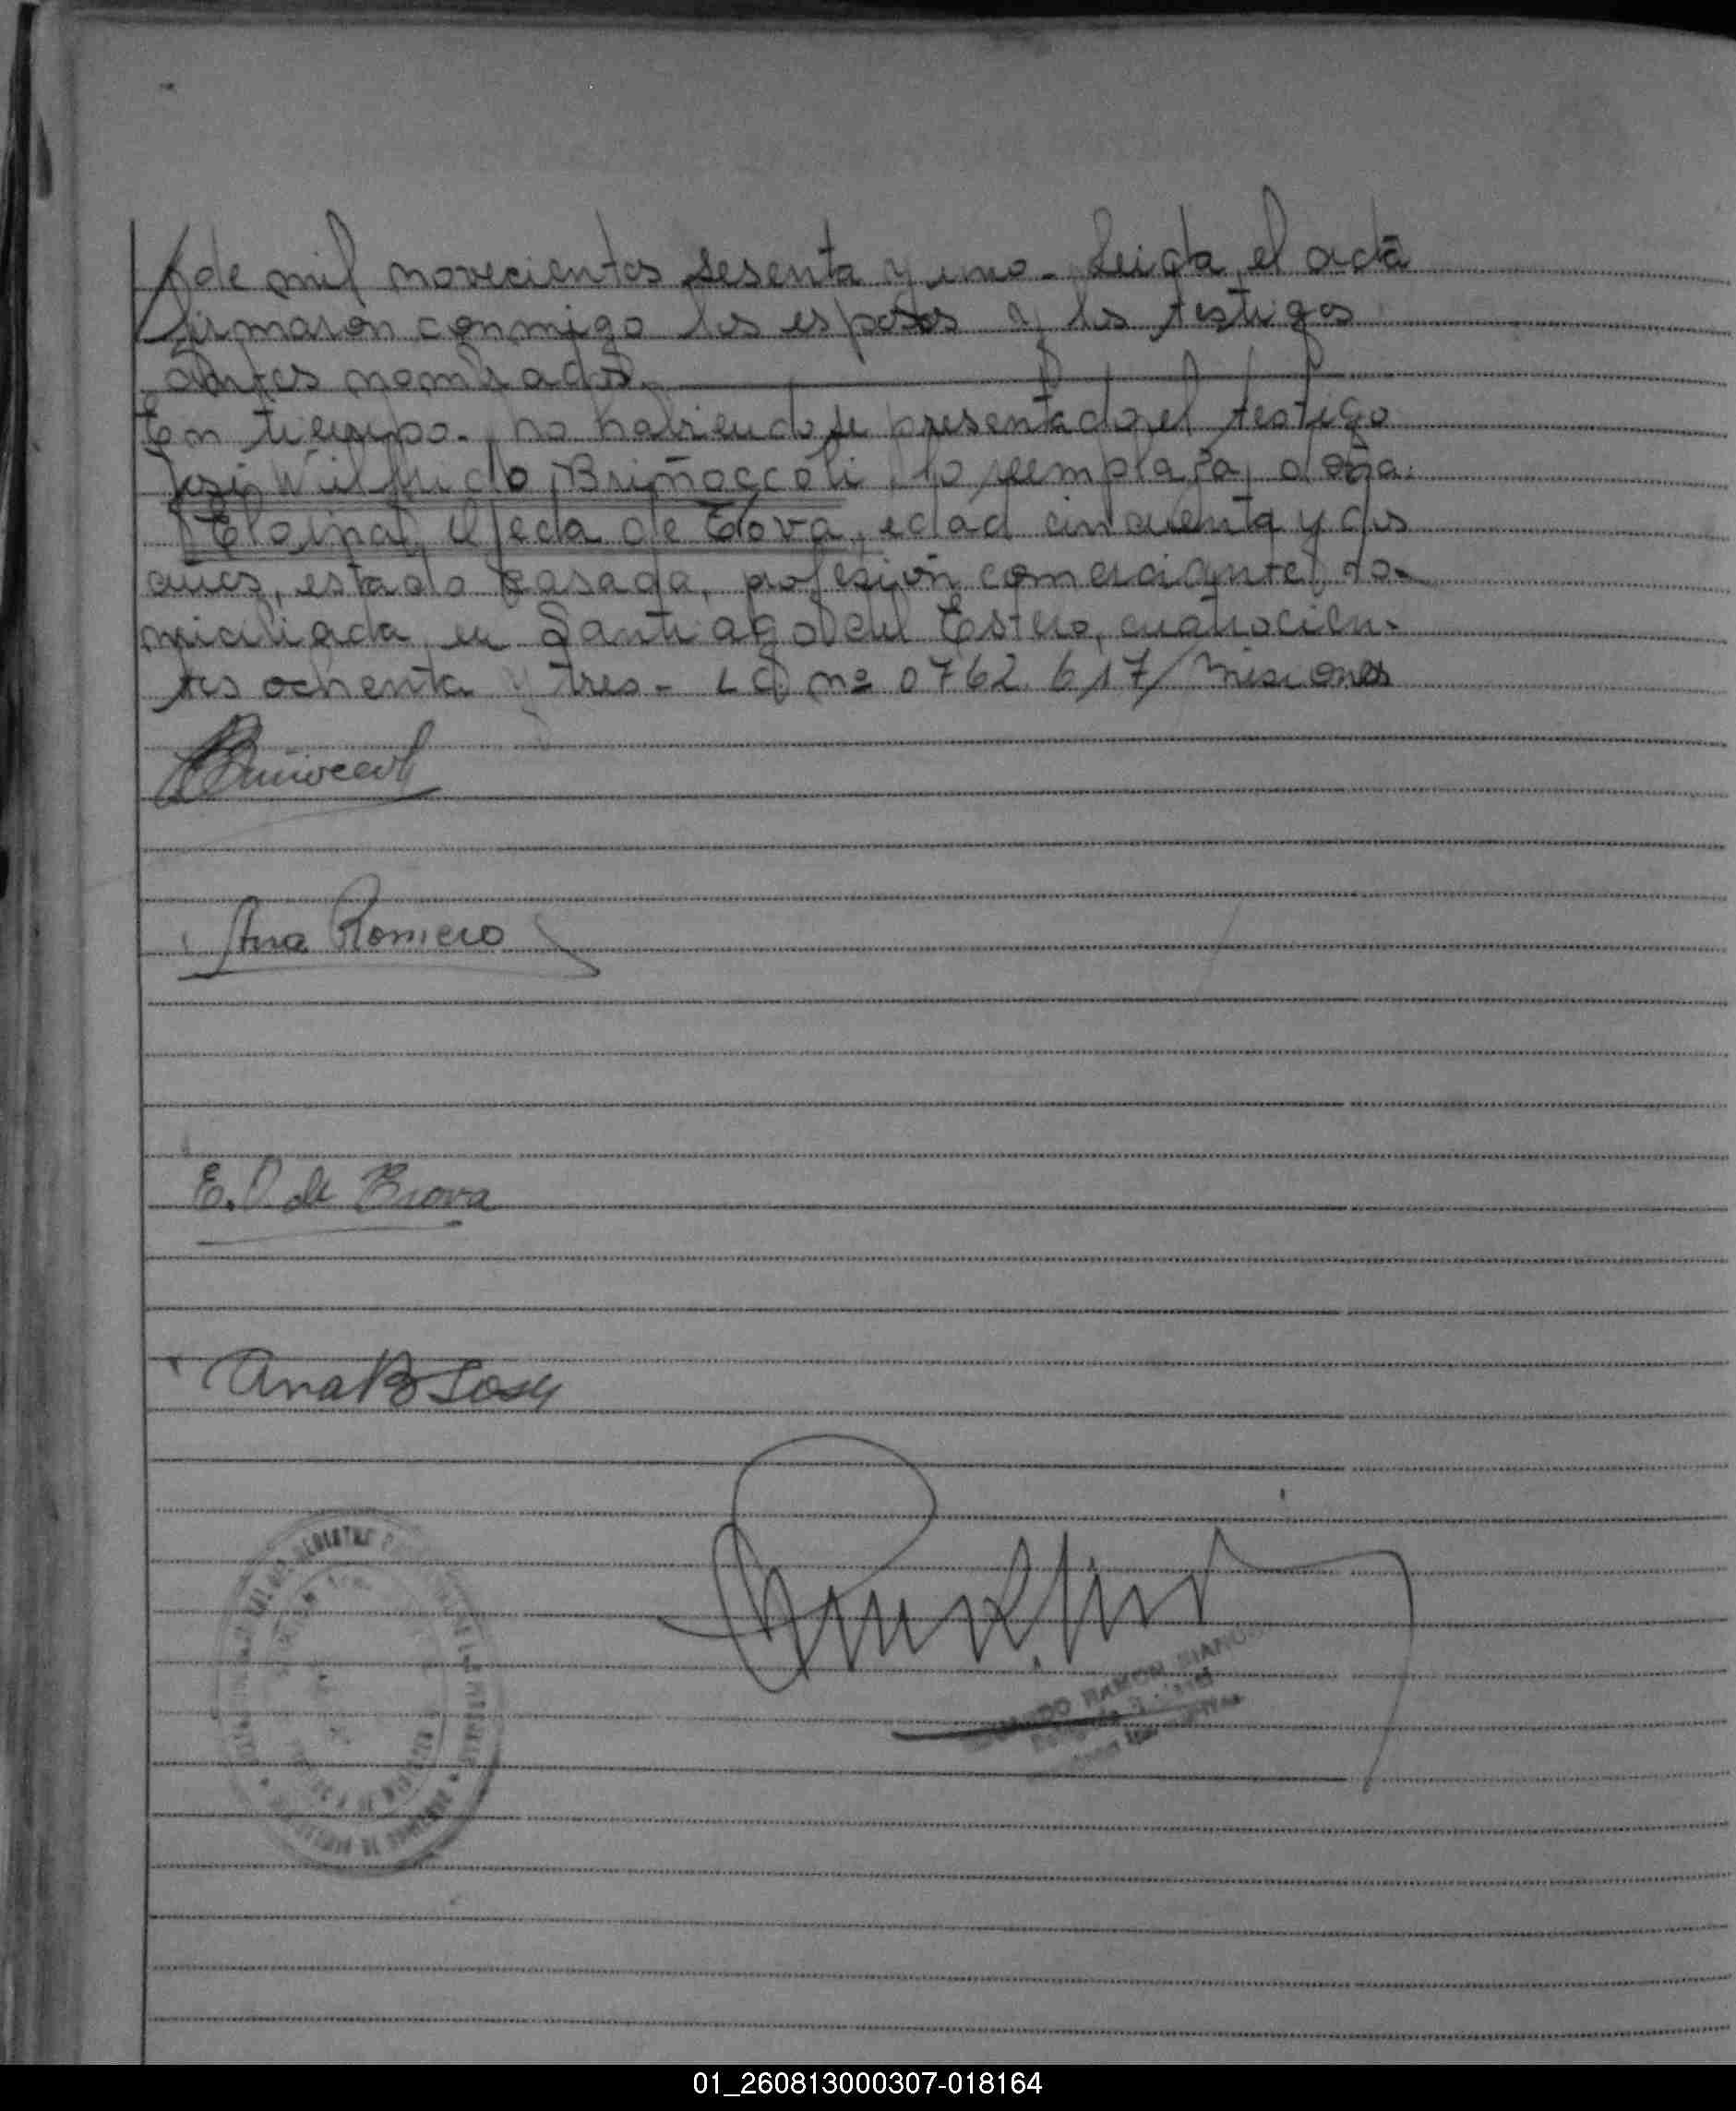 de mil novecientos sesenta y uno - Leida el acta
firmaron conmigo los esposos y los testigos
antes nombrados.
En tiempo. no habiendose presentado el testigo
José Wilfrido Briñoccoli, lo reemplaza, doña
Eloina Ojeda de Brova, edad cincuenta y dos
años, estado casada, profesión comerciante, do-
miciliada en Santiago del Estero, cuatrocien-
tos ochenta y tres - LC nº 0762.617/Misiones
Briñoccoli
Ana Romero
E. O. de Brova
Ana B Sosa
RAMON
01_260813000307-018164